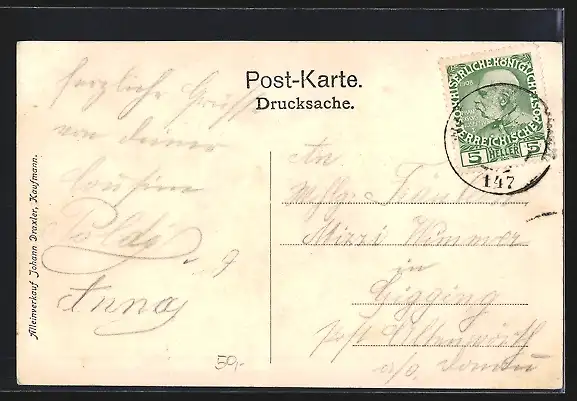 Post-Karte.
Drucksache.
herzliche Grüsse
von deiner
Cousine
Poldi
u
Anna
An
Wohlg. Fräulein
Mizzi Wimmer
in
Gigging
post Altenwörth
a/d. Donau
Alleinverkauf Johann Draxler, Kaufmann.
KAISERLICHE KÖNIGLICHE
ÖSTERREICHISCHE
5 HELLER 5
147
50,-